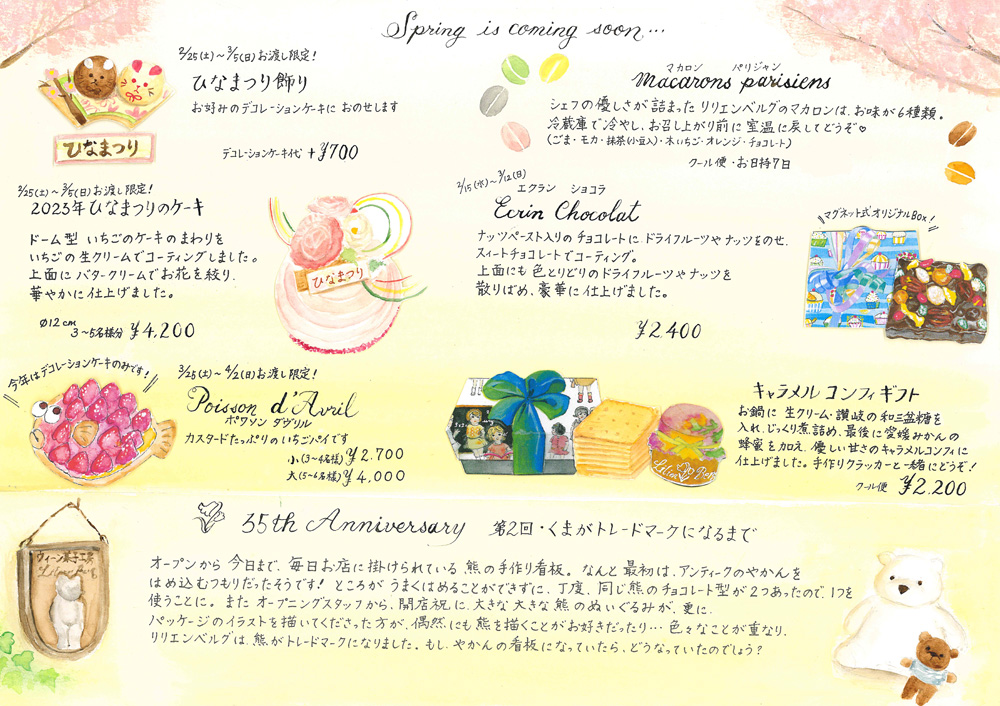 Spring is coming soon...
2/25(土)～3/5(日)お渡し限定!
ひなまつり飾り
お好みのデコレーションケーキに おのせします
デコレーションケーキ代 +¥700
ひなまつり
マカロン パリジャン
Macarons parisiens
シェフの優しさが詰まった リリエンベルグのマカロンは、お味が6種類。
冷蔵庫で冷やし、お召し上がり前に 室温に戻してどうぞ♡
(ごま・モカ・抹茶(小豆入)・木いちご・オレンジ・チョコレート)
クール便・お日持7日
2/25(土)～3/5(日)お渡し限定!
2023年ひなまつりのケーキ
ドーム型 いちごのケーキのまわりを
いちごの生クリームでコーティングしました。
上面に バタークリームでお花を絞り、
華やかに仕上げました。
Ø12cm
3～5名様分 ¥4,200
ひなまつり
2/15(水)～3/12(日)
エクラン ショコラ
Ecrin Chocolat
ナッツペースト入りのチョコレートに、ドライフルーツやナッツをのせ、
スイートチョコレートでコーティング。
上面にも 色とりどりのドライフルーツやナッツを
散りばめ、豪華に仕上げました。
¥2,400
マグネット式オリジナルBox!
今年はデコレーションケーキのみです!
3/25(土)～4/2(日)お渡し限定!
Poisson d'Avril
ポワソン ダヴリル
カスタードたっぷりのいちごパイです
小(3～4名様) ¥2,700
大(5～6名様) ¥4,000
キャラメル コンフィギフト
お鍋に 生クリーム・讃岐の和三盆糖を
入れ、じっくり煮詰め、最後に愛媛みかんの
蜂蜜を加え、優しい甘さのキャラメルコンフィに
仕上げました。手作りクラッカーと一緒にどうぞ!
クール便 ¥2,200
35th Anniversary 第2回・くまがトレードマークになるまで
ウィーン菓子工房
オープンから 今日まで、毎日お店に掛けられている 熊の手作り看板。なんと 最初は、アンティークのやかんを
はめ込むつもりだったそうです! ところが うまくはめることができずに、丁度、同じ熊のチョコレート型が2つあったので、1つを
使うことに。また オープニングスタッフから、開店祝に、大きな大きな熊のぬいぐるみが、更に、
パッケージのイラストを描いてくださった方が、偶然にも熊を描くことがお好きだったり… 色々なことが重なり、
リリエンベルグは、熊がトレードマークになりました。もし、やかんの看板になっていたら、どうなっていたのでしょう?